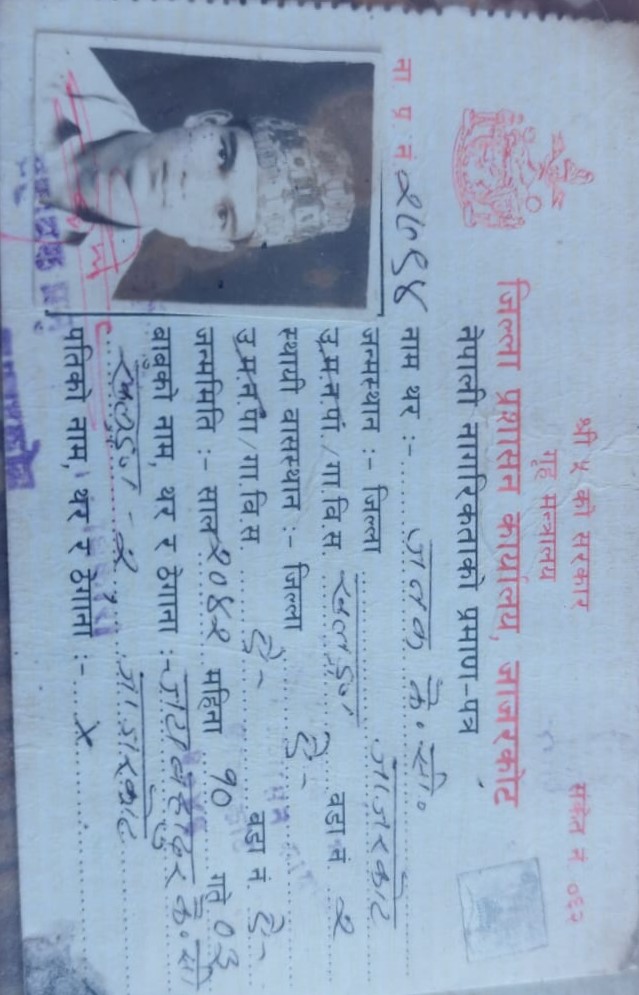 श्री ५ को सरकार
गृह मन्त्रालय
संकेत नं ०६२
जिल्ला प्रशासन कार्यालय, जाजरकोट
नेपाली नागरिकताको प्रमाण-पत्र
ना प्र नं
नाम थर :- जनक के. सी.
जन्मस्थान :- जिल्ला जाजरकोट
उ.म.न.पा / गा.वि.स वडा नं २
स्थायी वासस्थान :- जिल्ला ऐ-
उ.म.न.पा / गा.वि.स. ऐ- वडा नं ऐ-
जन्ममिति :- साल २०४२ महिना १० गते ०३
बाबुको नाम, थर र ठेगाना :- के. सी
- २ जाजरकोट
पतिको नाम, थर र ठेगाना :- x